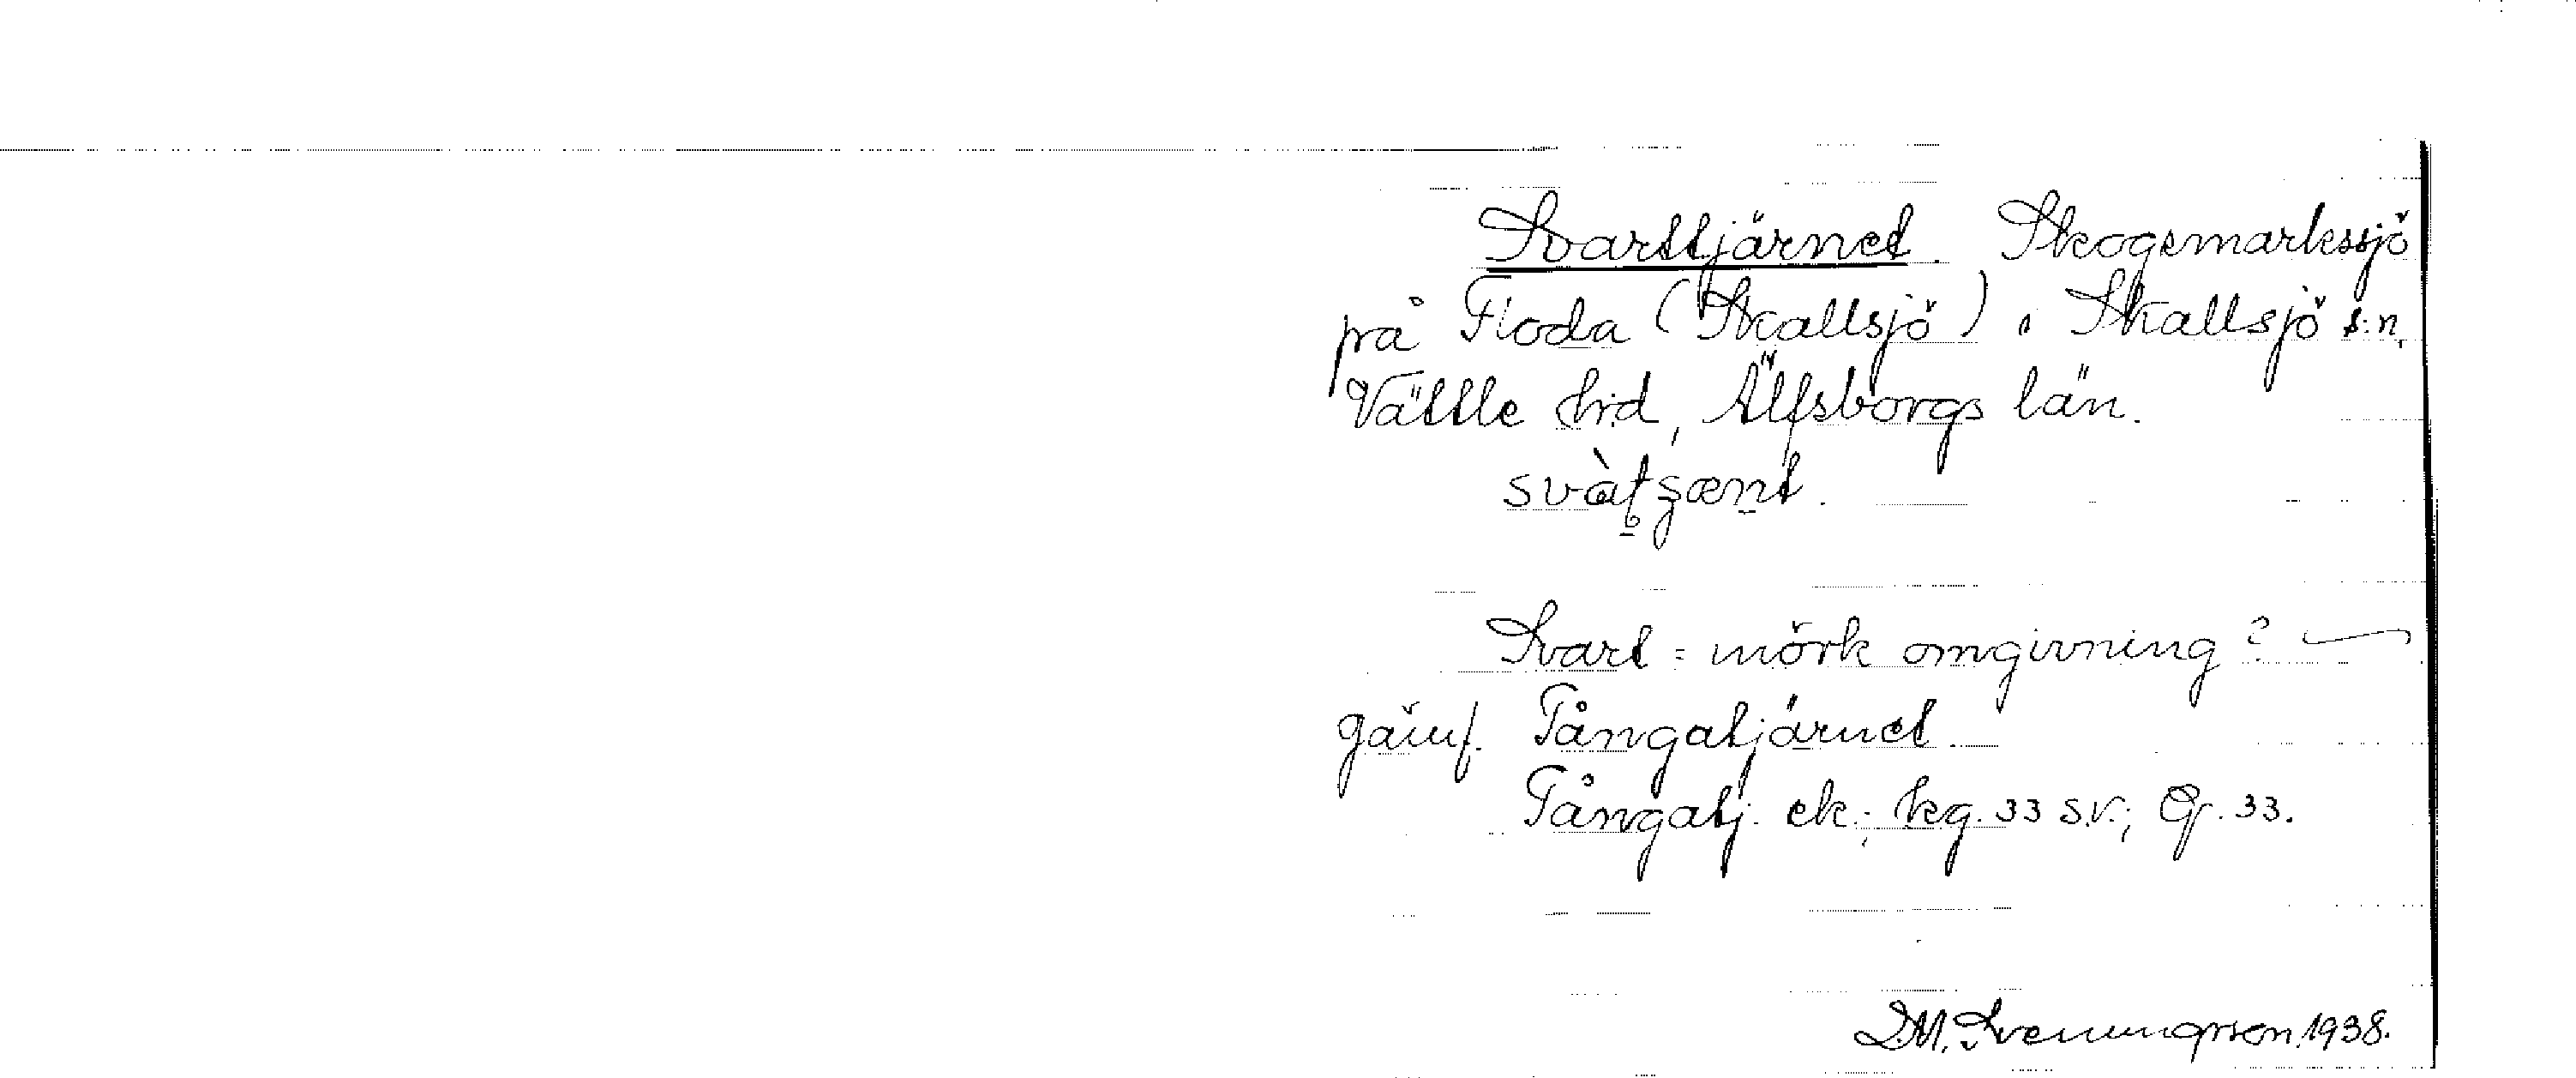 Svarttjärnet. Skogsmarkssjö
på Floda (Skallsjö) i Skallsjö s:n,
Vättle hd, Älfsborgs län.
svàtʂænt.
Svart = mörk omgivning? —
Jämf. Tångatjärnet.
Tångatj. ek.; kg. 33 s.v.; Gr. 33.
D.M. Svenungsson 1938.